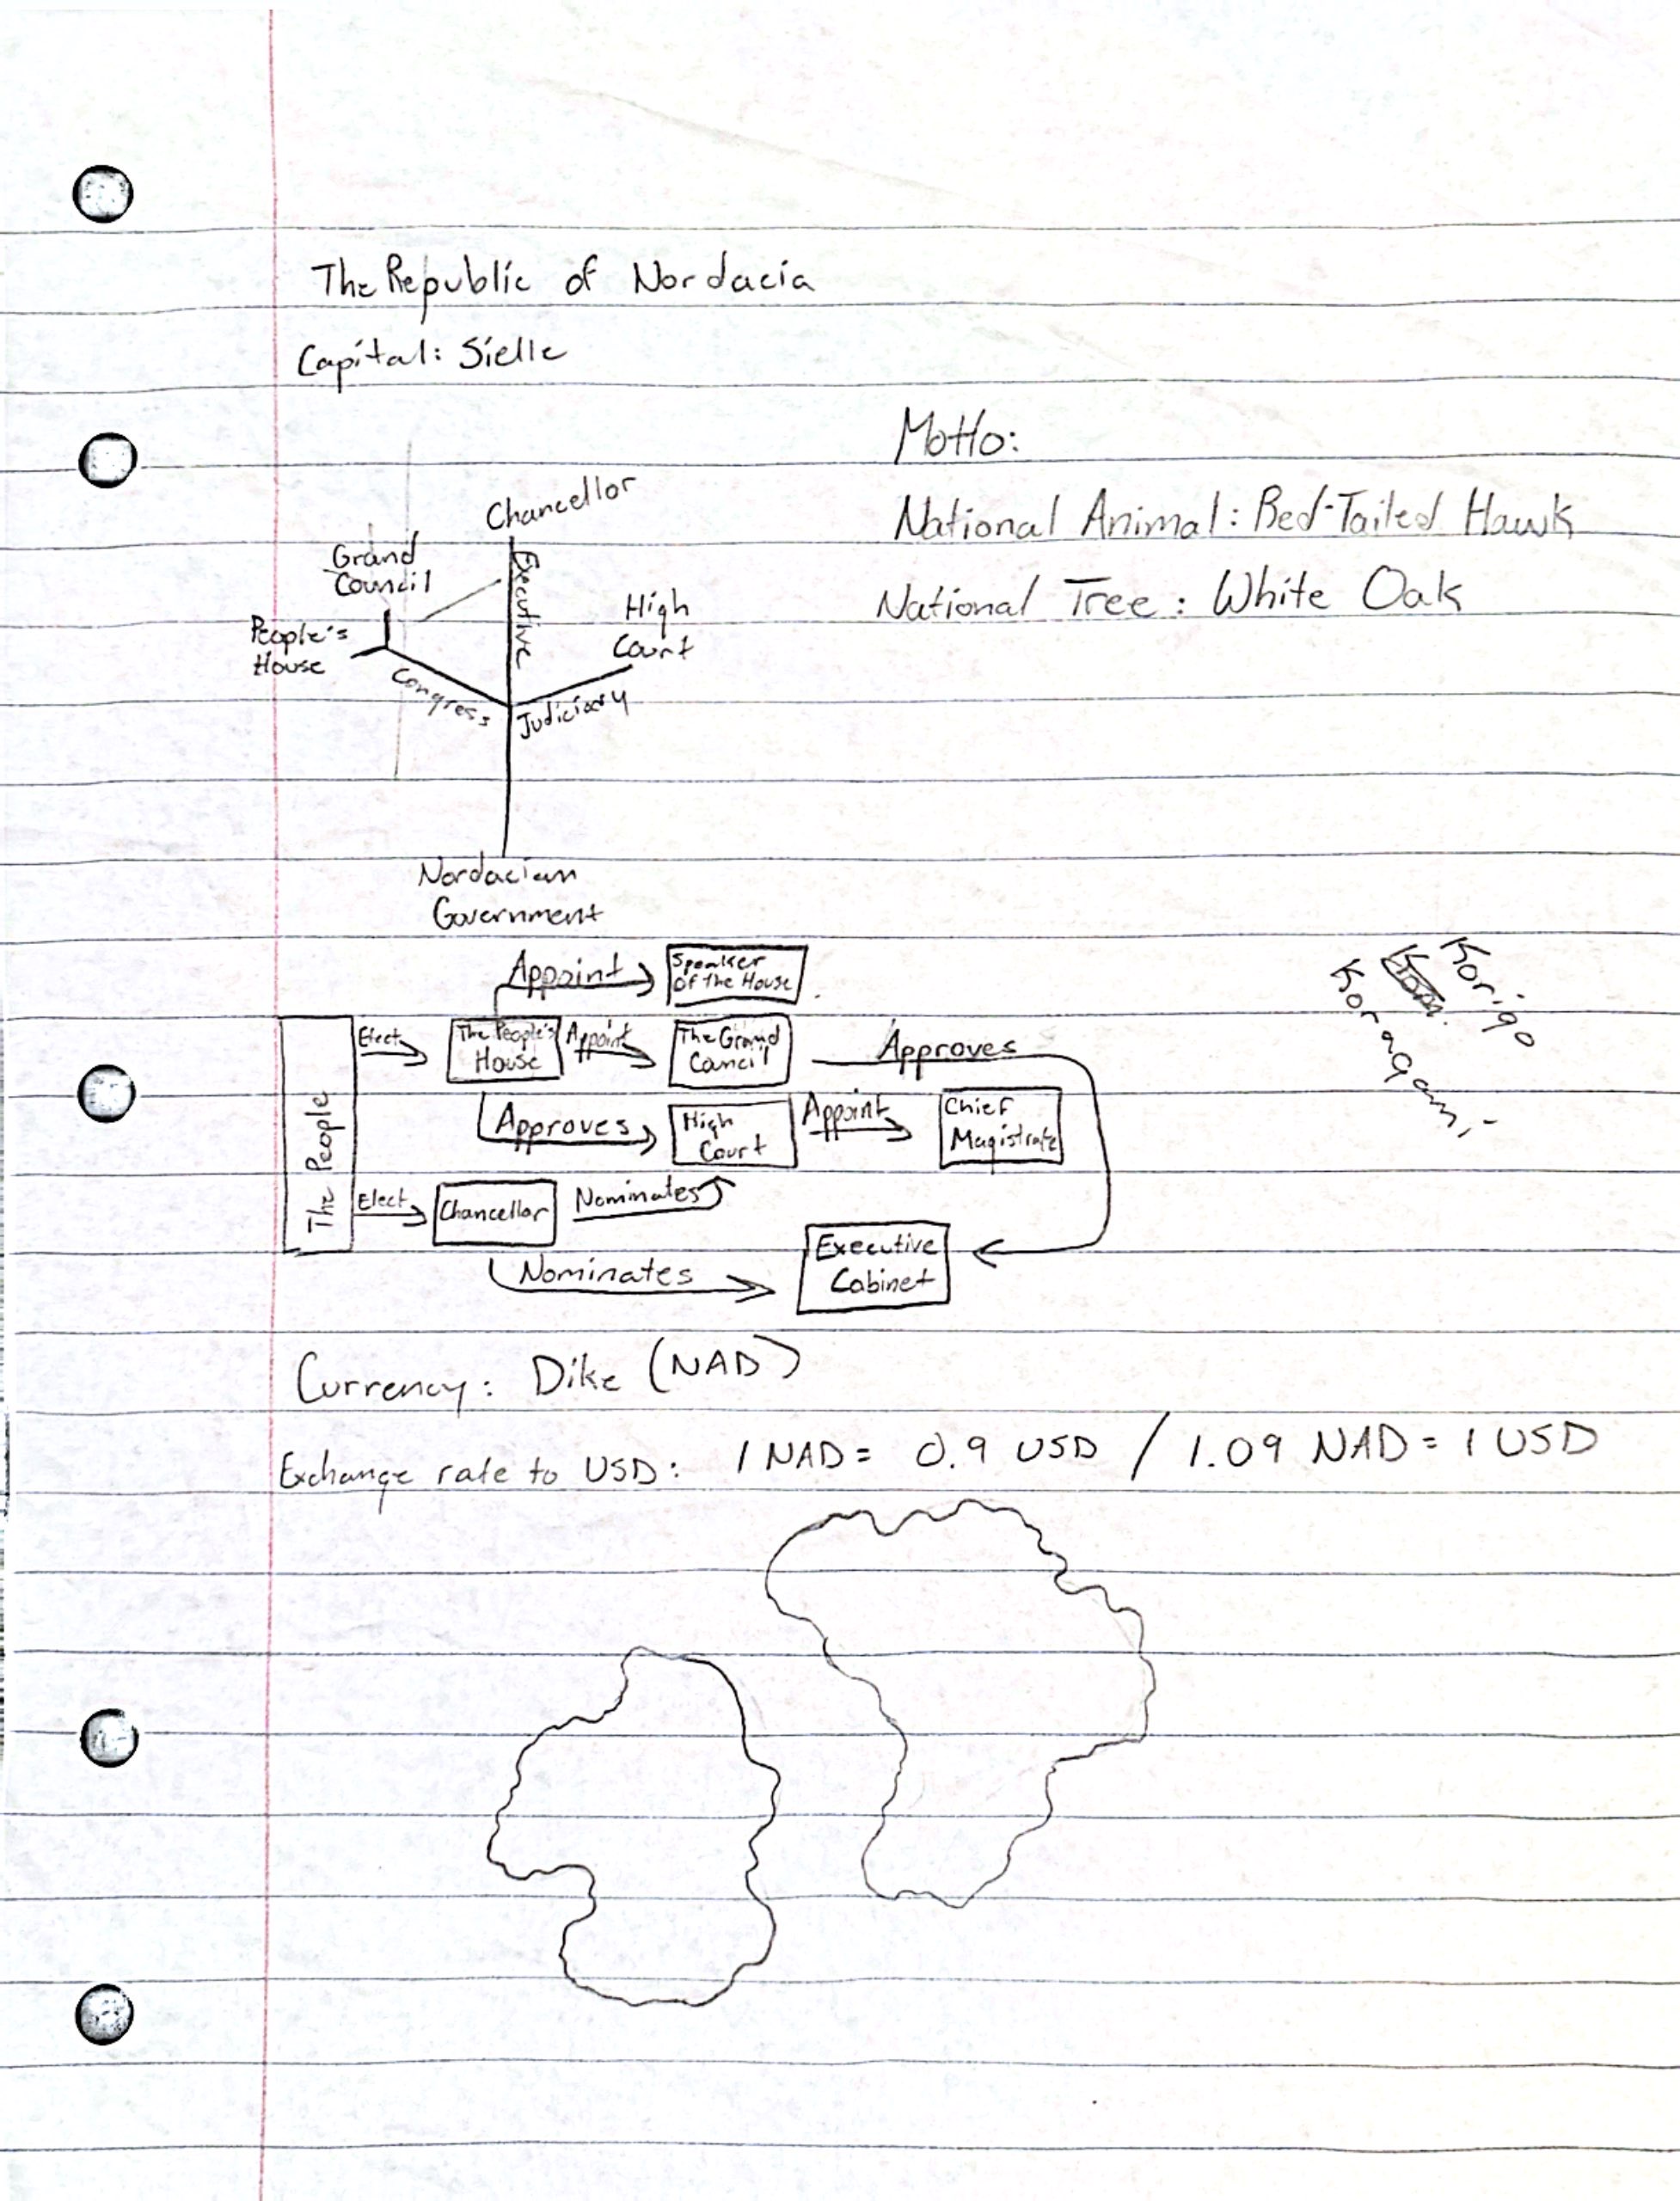 The Republic of Nordacia
Capital: Sielle
Motto:
National Animal: Red-Tailed Hawk
National Tree: White Oak
Chancellor
Grand
Council
Executive
High
Court
People's
House
Congress
Judiciary
Nordacian
Government
Appoint
Speaker
Of the House
The People
Elect
The People's
House
Appoint
The Grand
Council
Approves
Approves
High
Court
Appoint
Chief
Magistrate
Elect
Chancellor
Nominates
Nominates
Executive
Cabinet
Korigo
Koragami
Currency: Dike (NAD)
Exchange rate to USD: 1 NAD = 0.9 USD / 1.09 NAD = 1 USD